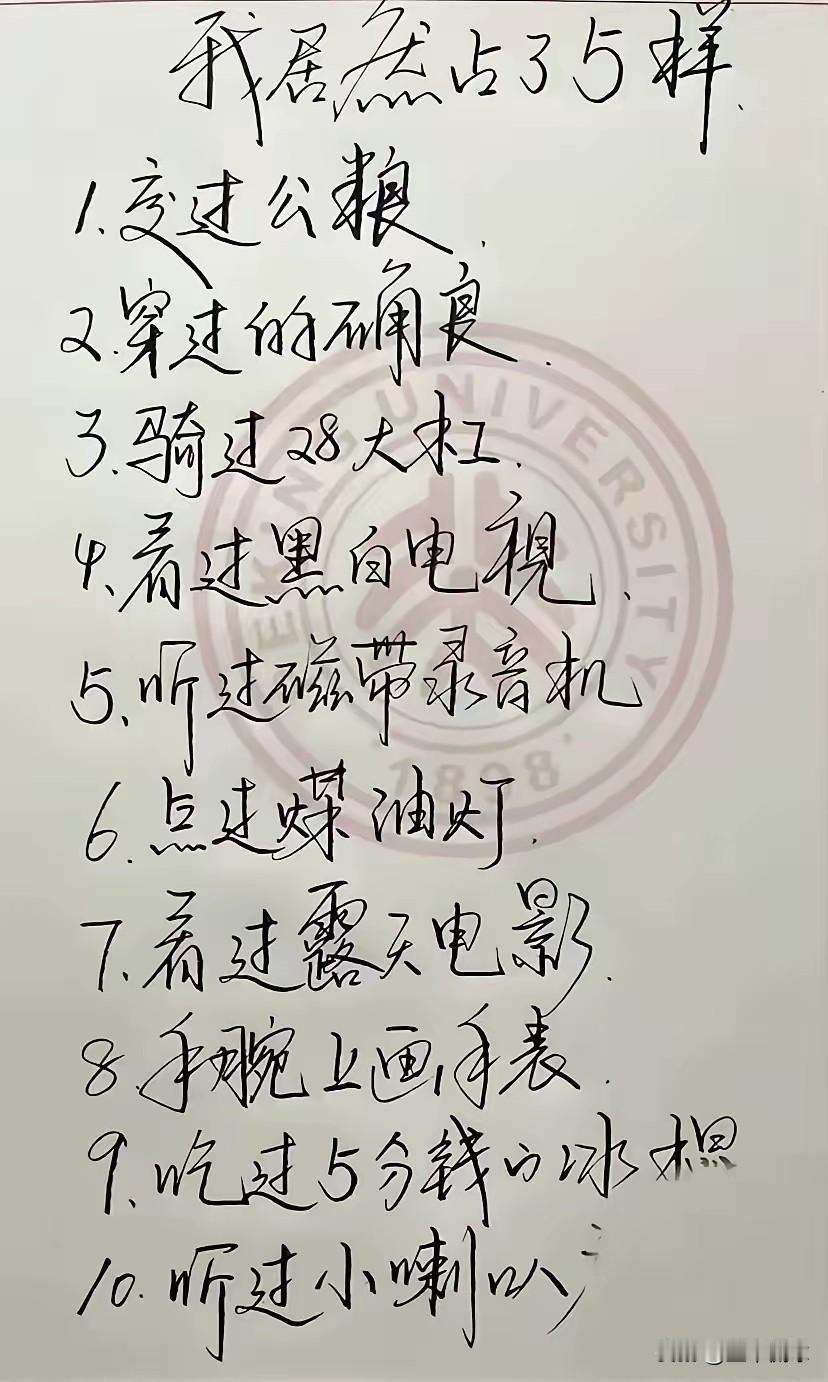 我居然占了5样.
1.交过公粮.
2.穿过的确良.
3.骑过28大杠.
4.看过黑白电視.
5.听过磁带录音机
6.点过煤油灯.
7.看过露天电影.
8.手腕上画手表.
9.吃过5分钱的冰棍
10.听过小喇叭
EKING UNIVERSITY
1898